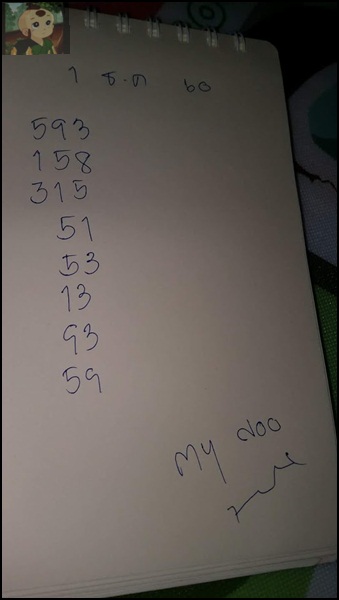 1 ธ.ค 60
593
158
315
51
53
13
93
59